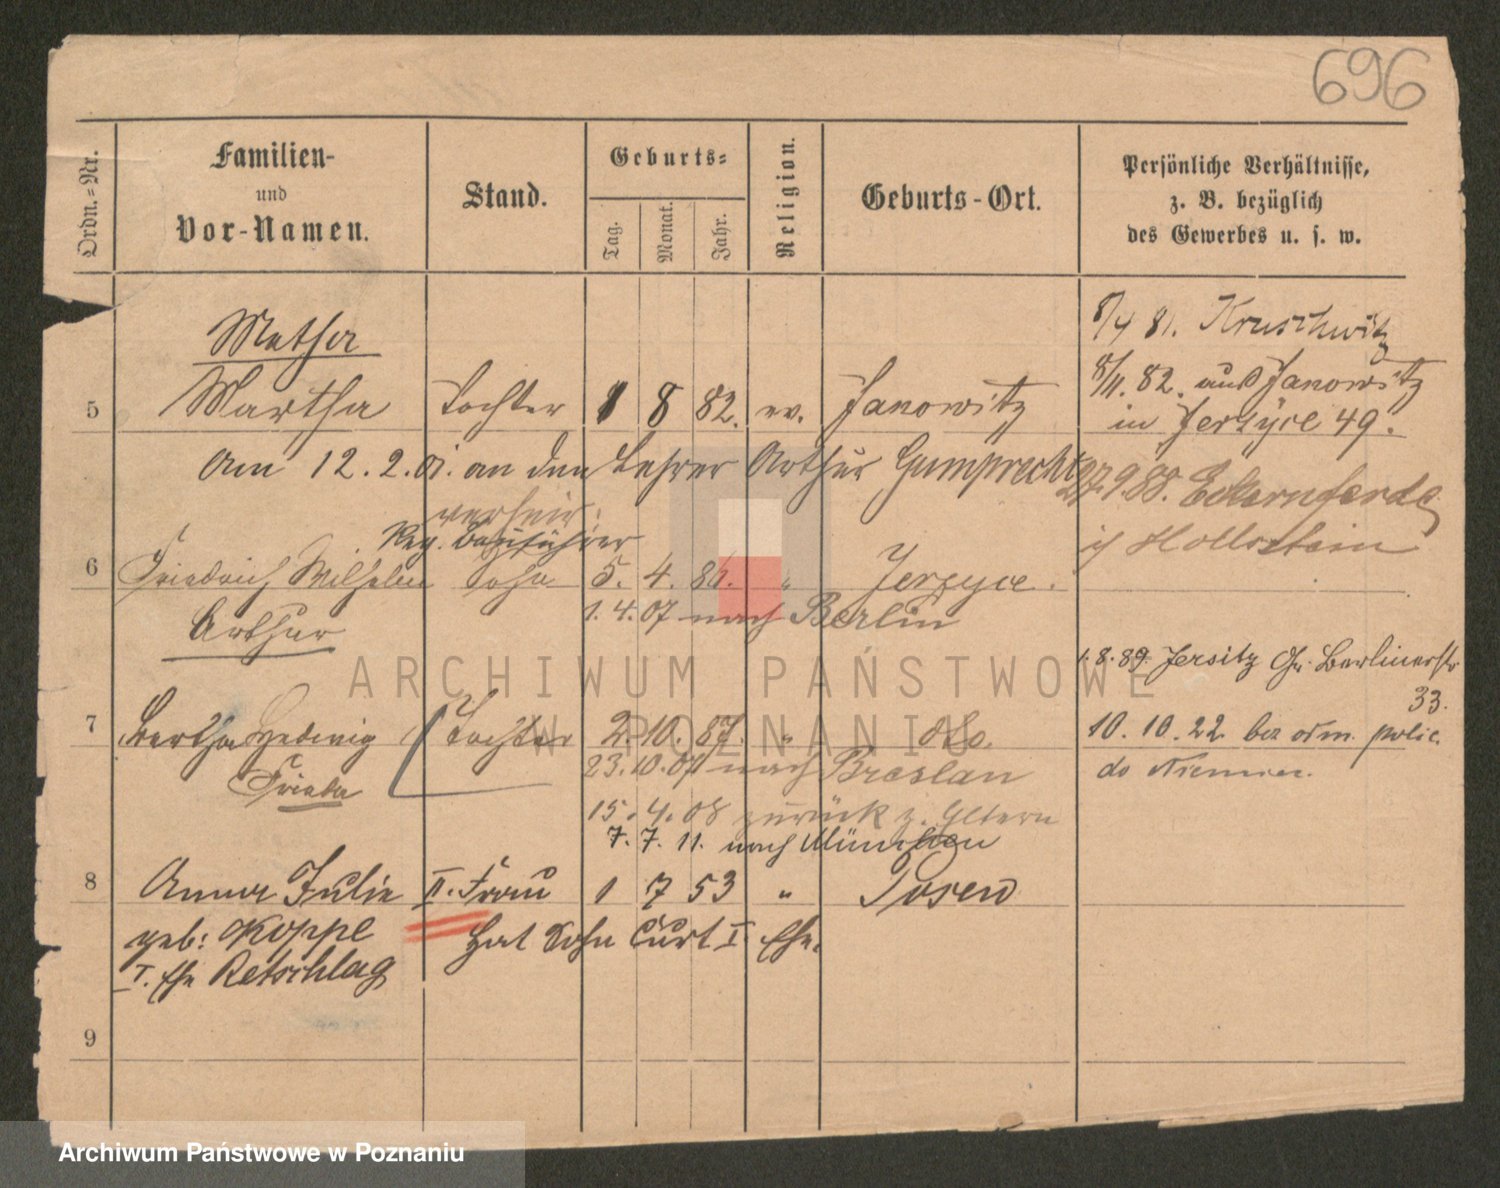 696
Ordn.-Nr.
Familien-
und
Vor-Namen.
Stand.
Geburts-
Tag.
Monat.
Jahr.
Religion.
Geburts-Ort.
Persönliche Verhältnisse,
z. B. bezüglich
des Gewerbes u. s. w.
8/4 81. Kruschwitz
Metha
8/11. 82. aus Janowitz
5 Martha Tochter 1 8 82. ev. Janowitz
in Jerzyce 49.
Am 12.2.01. an den Lehrer Arthur Gumprecht
verheir.
27.9.88. Eckernförde
Reg. Bauführer
in Holstein
6 Friedrich Wilhelm Sohn 5. 4. 86. " Jerzyce.
Arthur
1.4.07 nach Berlin
1.8.89. Jersitz Gr. Berlinerstr
33.
7 Bertha Hedwig Tochter 2. 10. 87. " do.
10.10.22 bez odm. polic.
Frieda
23.10.07 nach Breslau
do Niemiec.
15.4.08 zurück z. Eltern
7.7.11. nach München
8 Anna Julie II. Frau 1 7 53 " Posen
geb: Koppe
Hat Sohn Curt I. Ehe.
I. Ehe Retschlag
9
ARCHIWUM PAŃSTWOWE
W POZNANIU
Archiwum Państwowe w Poznaniu